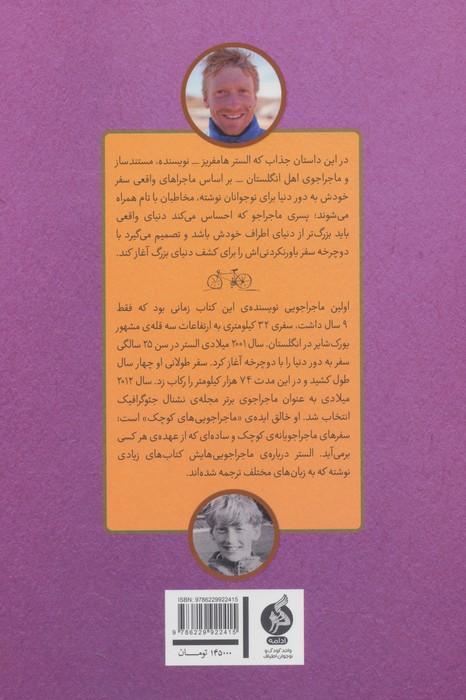 در این داستان جذاب که الستر هامفریز ــ نویسنده، مستندساز
و ماجراجوی اهل انگلستان ــ بر اساس ماجراهای واقعی سفر
خودش به دور دنیا برای نوجوانان نوشته، مخاطبان با تام همراه
می‌شوند؛ پسری ماجراجو که احساس می‌کند دنیای واقعی
باید بزرگ‌تر از دنیای اطراف خودش باشد و تصمیم می‌گیرد با
دوچرخه سفر باورنکردنی‌اش را برای کشف دنیای بزرگ آغاز کند.
اولین ماجراجویی نویسنده‌ی این کتاب زمانی بود که فقط
۹ سال داشت، سفری ۳۲ کیلومتری به ارتفاعات سه قله‌ی مشهور
یورک‌شایر در انگلستان. سال ۲۰۰۱ میلادی الستر در سن ۲۵ سالگی
سفر به دور دنیا را با دوچرخه آغاز کرد. سفر طولانی او چهار سال
طول کشید و در این مدت ۷۴ هزار کیلومتر را رکاب زد. سال ۲۰۱۲
میلادی به عنوان ماجراجوی برتر مجله‌ی نشنال جئوگرافیک
انتخاب شد. او خالق ایده‌ی «ماجراجویی‌های کوچک» است؛
سفرهای ماجراجویانه‌ی کوچک و ساده‌ای که از عهده‌ی هر کسی
برمی‌آید. الستر درباره‌ی ماجراجویی‌هایش کتاب‌های زیادی
نوشته که به زبان‌های مختلف ترجمه شده‌اند.
ISBN: 9786229922415
9 786229 922415
۱۴۵۰۰۰ تومــان
ادامه
واحد کودک و
نوجوان اطراف